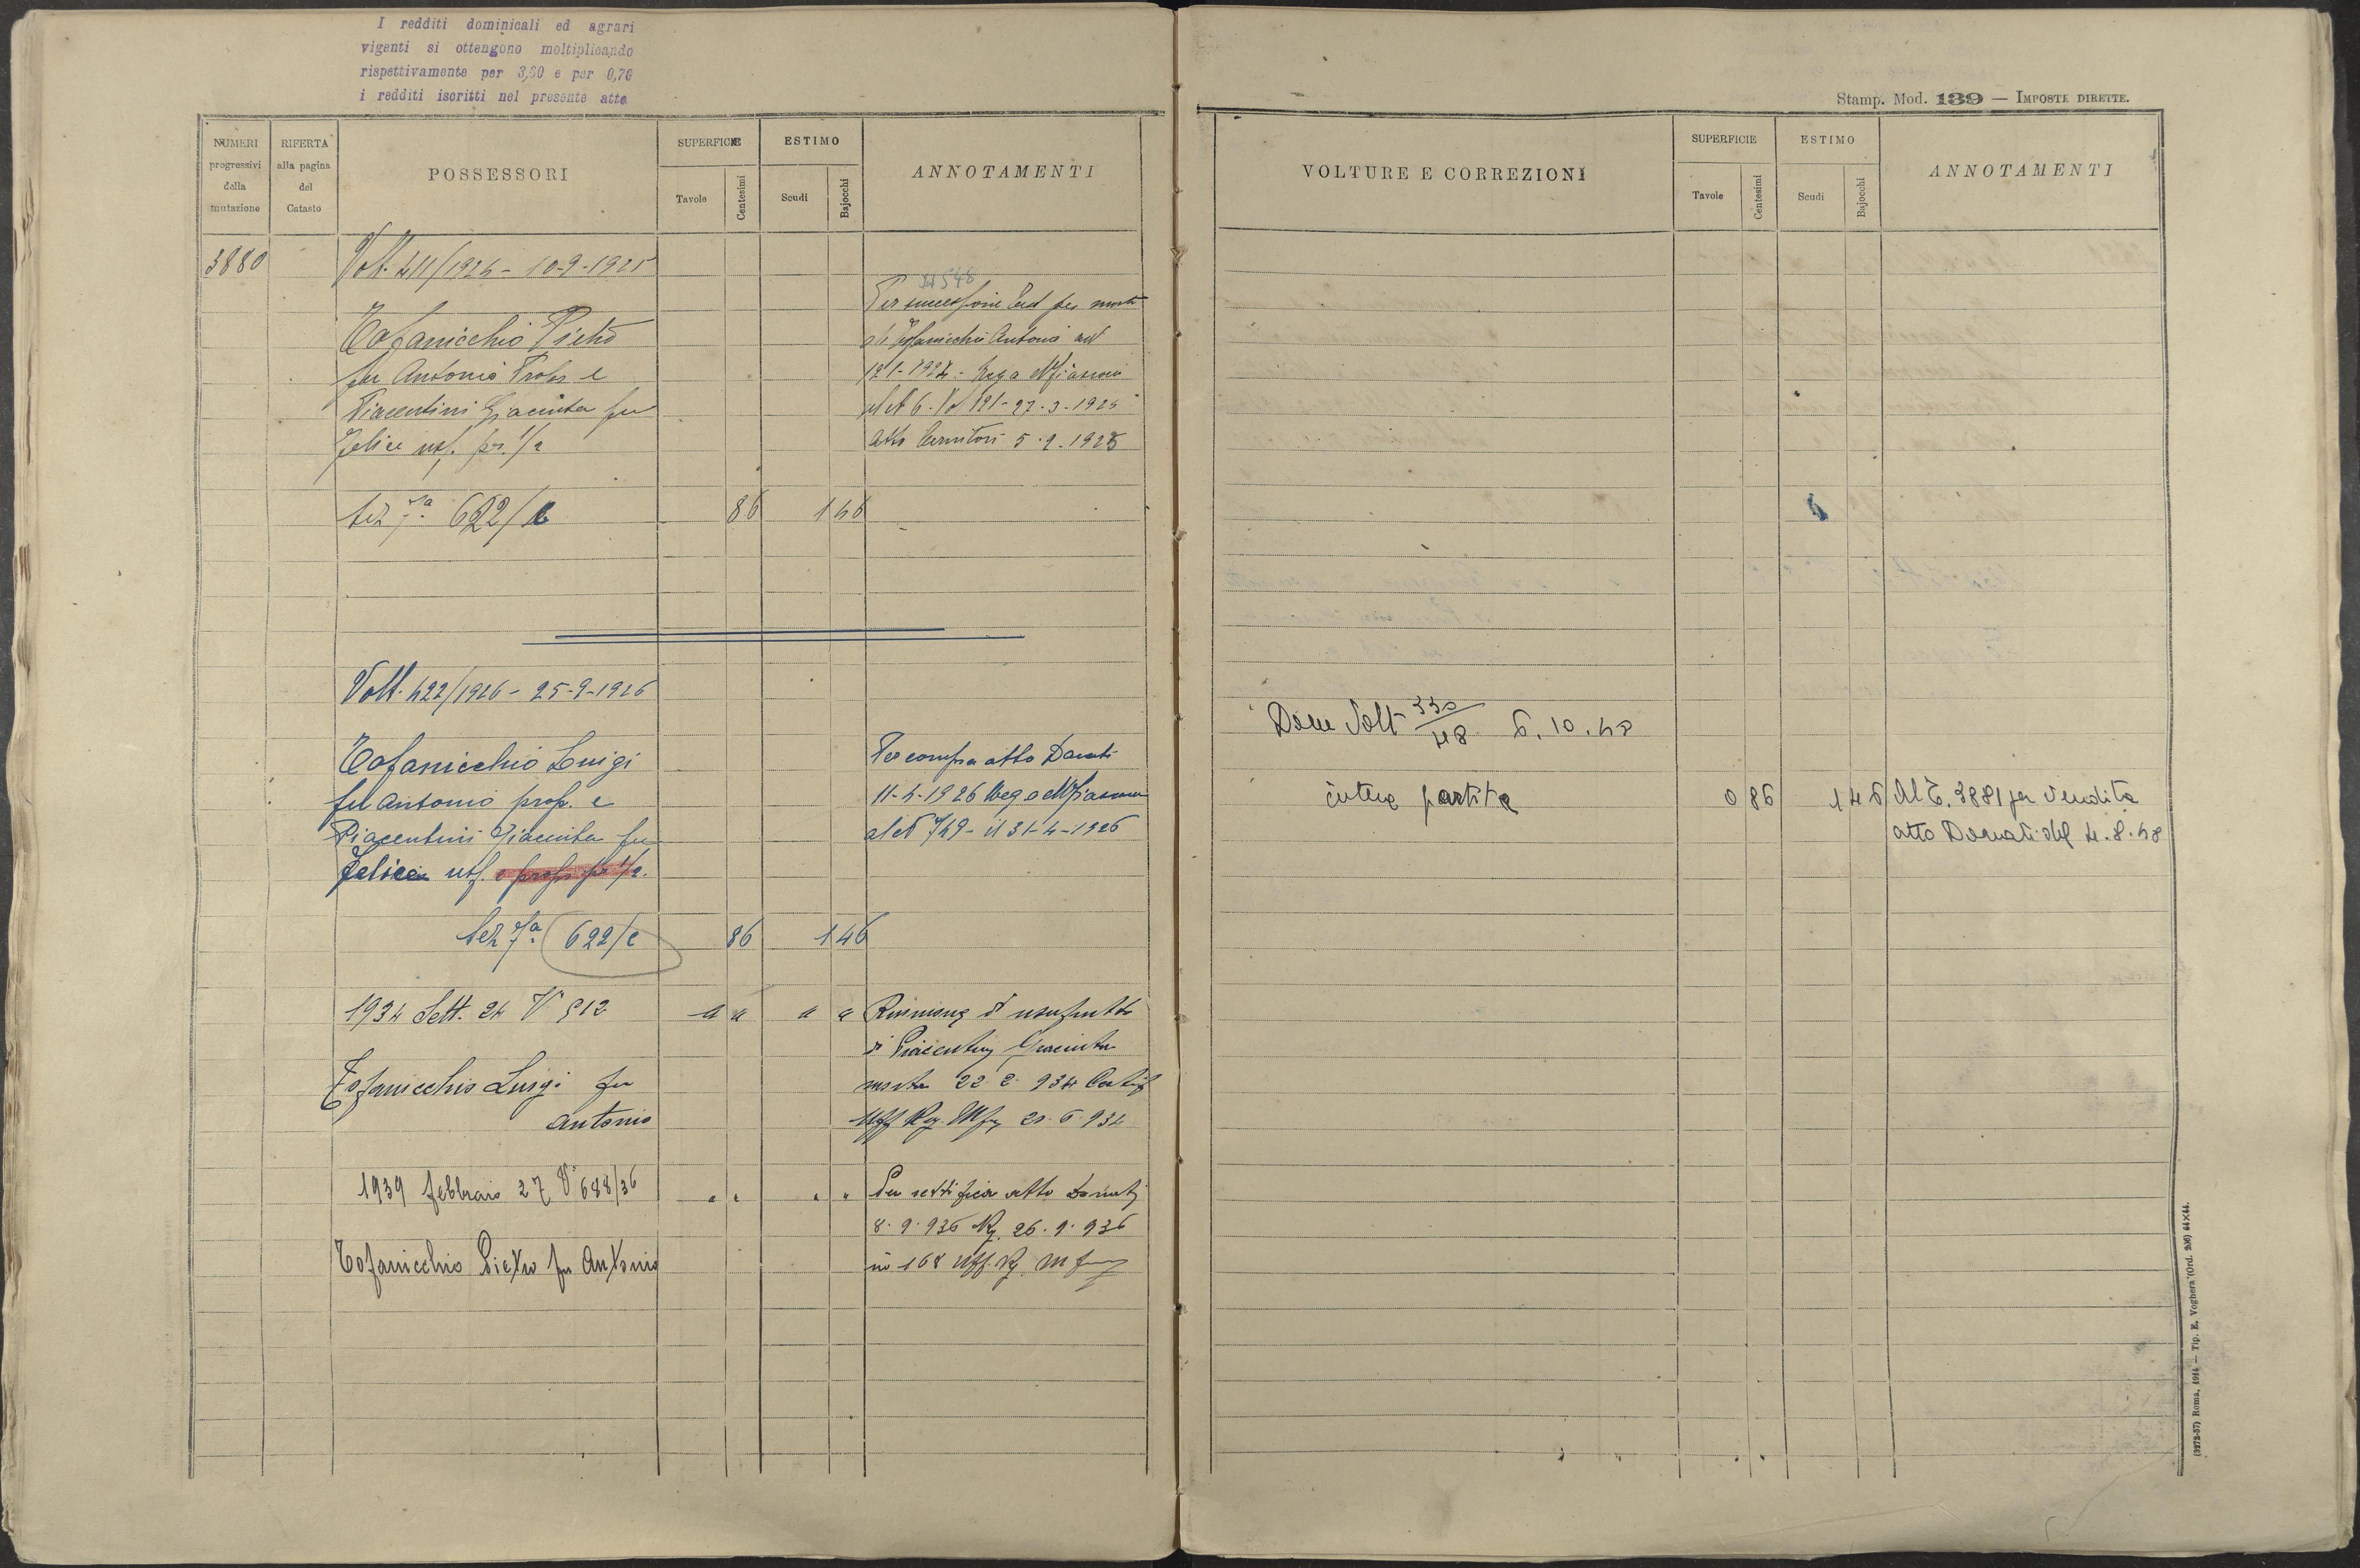 I redditi dominicali ed agrari
vigenti si ottengono moltiplicando
rispettivamente per 3,60 e per 0,70
i redditi iscritti nel presente atto
NUMERI progressivi della mutazione
RIFERTA alla pagina del Catasto
POSSESSORI
SUPERFICIE
Tavole
Centesimi
ESTIMO
Scudi
Bajocchi
ANNOTAMENTI
3880
Volt. 411/1925 - 10-9-1925
Tofanicchio Pietro
fu Antonio Propr e
Piacentini Giacinta fu
Felice usf. pr. 1/2
Sez 7a 622/
86 1 46
Per successione
di Tofanicchio Antonio
12-1-1924 - Reg a Mfiascone
al N 6 - Vol 121 - 27-3-1925
Atto 5-9-1925
Volt. 422/1926 - 25-9-1926
Tofanicchio Luigi
fu Antonio prop. e
Piacentini Giacinta fu
Felice usf. e propr. pr 1/2.
Sez 7a 622/c
86 1 46
Per compra atto Donati
11-4-1926 Reg a Mfiascone
al N 749 - il 31-4-1926
1934 Sett. 24 V 512
" " " " Riunione d' usufrutto
di Piacentini Giacinta
morta 22. 2. 934 Certif
Uff Reg. Mf 20. 6. 934
Tofanicchio Luigi fu
Antonio
1939 febbraio 27 V 688/36
" " " " Per rettifica atto Donati
8. 9. 936 Rg. 26. 9. 936
no 168 Uff. Rg.
Tofanicchio Pietro fu Antonio
Stamp. Mod. 139 — IMPOSTE DIRETTE.
VOLTURE E CORREZIONI
SUPERFICIE
Tavole
Centesimi
ESTIMO
Scudi
Bajocchi
ANNOTAMENTI
Volt 330/48 6. 10. 48
intera partita
0 86 1 46
Al T. 3881 per vendita
atto Donati del 4. 8. 48
(3272-57) Roma, 1914 — Tip. E. Voghera (Ord. 206) 64×44.